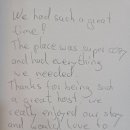 We had such a great
time!
The place was super cozy
and had everything
we needed.
Thanks for being such
a great host we
really enjoyed our stay
and would love to